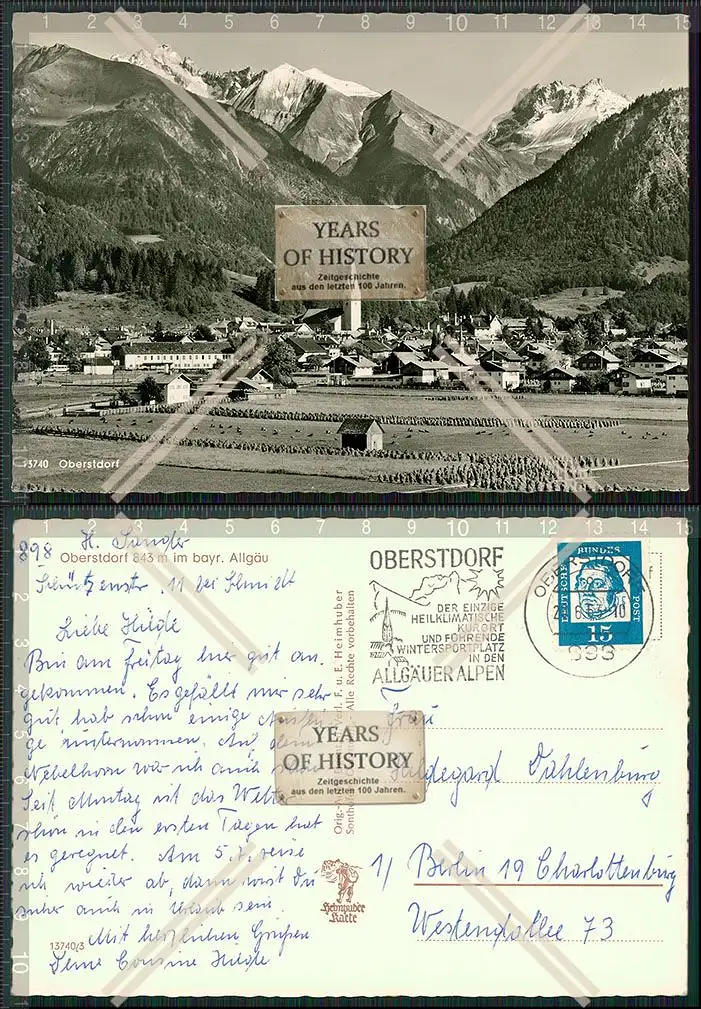 1 2 3 4 5 6 7 8 9 10 11 12 13 14 15
YEARS
OF HISTORY
Zeitgeschichte
aus den letzten 100 Jahren.
13740 Oberstdorf
1 2 3 4 5 6 7 8 9 10 11 12 13 14 15
898 H. Sander
Oberstdorf 843 m im bayr. Allgäu
11 bei Schmidt
Liebe Hilde
Bin am Freitag hier gut an,
gekommen. Es gefällt mir sehr
gut hab schon einige
ge unternommen. Auf dem
Nebelhorn war ich auch
Seit Montag ist das Wetter
schön in den ersten Tagen hat
es geregnet. Am 5.7. reise
ich wieder ab, dann wirst Du
sicher auch in Urlaub sein.
Mit herzlichen Grüßen
Deine Cousine Hilde
13740/3
Verl. F. u. E. Heimhuber
Alle Rechte vorbehalten
Heimhuber
Karte
OBERSTDORF
DER EINZIGE
HEILKLIMATISCHE
KURORT
UND FÜHRENDE
WINTERSPORTPLATZ
IN DEN
ALLGÄUER ALPEN
OBERSTDORF
DEUTSCHE BUNDESPOST
15
YEARS
OF HISTORY
Zeitgeschichte
aus den letzten 100 Jahren.
Frau
Hildegard Dahlenburg
1/ Berlin 19 Charlottenburg
Westendallee 73